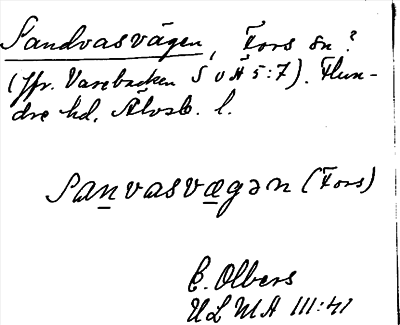 Sandvasvägen, Fors sn?
(jfr. Varebacken SOÄ 5:7). Flun-
dre hd, Älvsb. l.
Sanvasvægən (Fors)
E. Olbers
ULMA III:41